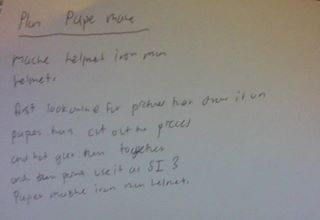 Plan Pape mache
mache helmet iron man
helmet.
first look online for picture then draw it on
paper then cut out the pieces
and hot glue them together
and then use it as
Paper mache iron man helmet.